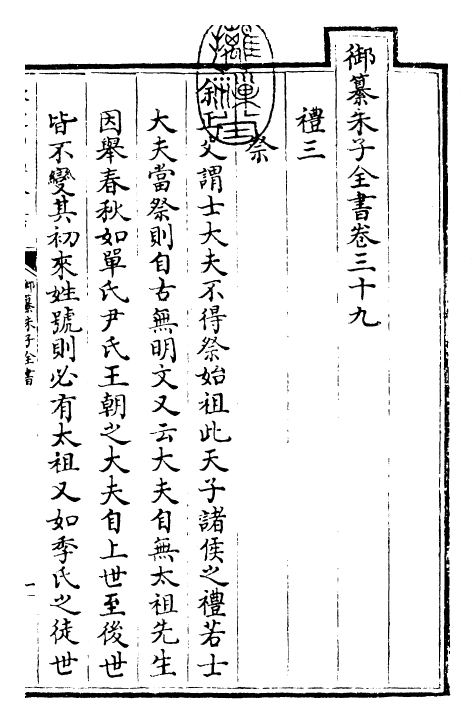 御纂朱子全書卷三十九
禮三
祭
父謂士大夫不得祭始祖此天子諸侯之禮若士
大夫當祭則自古無明文又云大夫自無太祖先生
因舉春秋如單氏尹氏王朝之大夫自上世至後世
皆不變其初來姓號則必有太祖又如季氏之徒世
御纂朱子全書
一